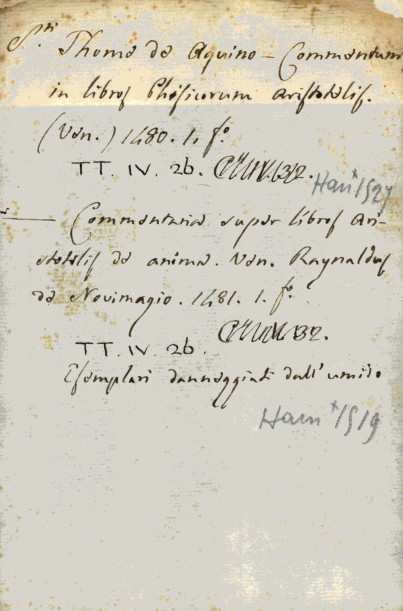 Sti Thomæ de Aquino – Commentum
in libros Phisicorum Aristotelis.
(Ven.) 1480. 1. fo.
TT. IV. 26.
Hain 1527
—— Commentaria super libros Ari-
stotelis de anima. Ven. Raynaldus
de Novimagio. 1481. 1. fo.
TT. IV. 26.
Esemplari danneggiati dall'umido
Hain + 1519